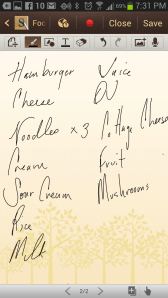 7:31 PM
Foc
Close Save
Hamburger Juice
Cheese
Noodles x 3 Cottage Cheese
Cream Fruit
Sour Cream Mushrooms
Rice
Milk
2/2